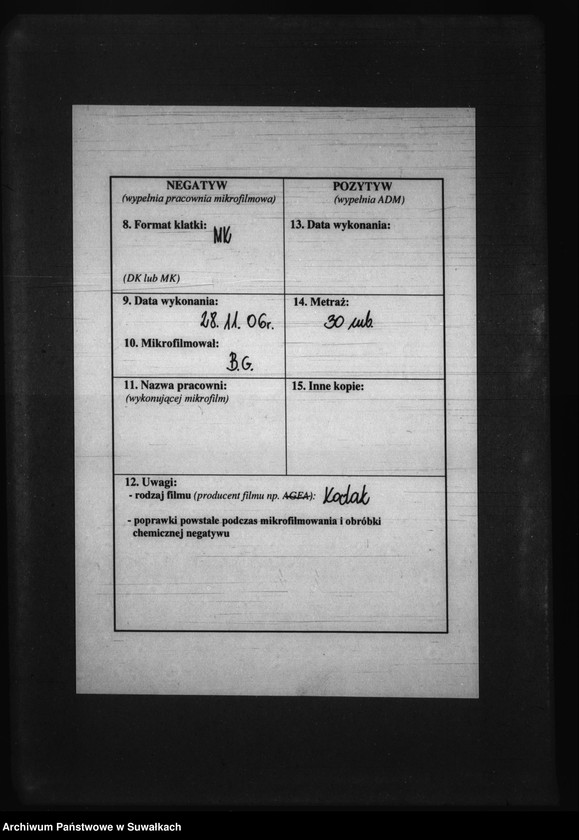 NEGATYW
(wypełnia pracownia mikrofilmowa)
8. Format klatki: MK
(DK lub MK)
9. Data wykonania:
28.11.06r.
10. Mikrofilmował:
B.G.
11. Nazwa pracowni:
(wykonującej mikrofilm)
POZYTYW
(wypełnia ADM)
13. Data wykonania:
14. Metraż:
30 mb.
15. Inne kopie:
12. Uwagi:
- rodzaj filmu (producent filmu np. AGFA): Kodak
- poprawki powstałe podczas mikrofilmowania i obróbki
chemicznej negatywu
Archiwum Państwowe w Suwałkach